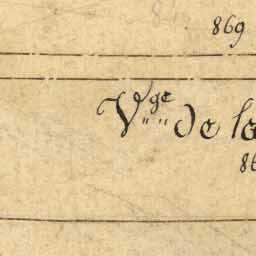 869
Vge de la
86